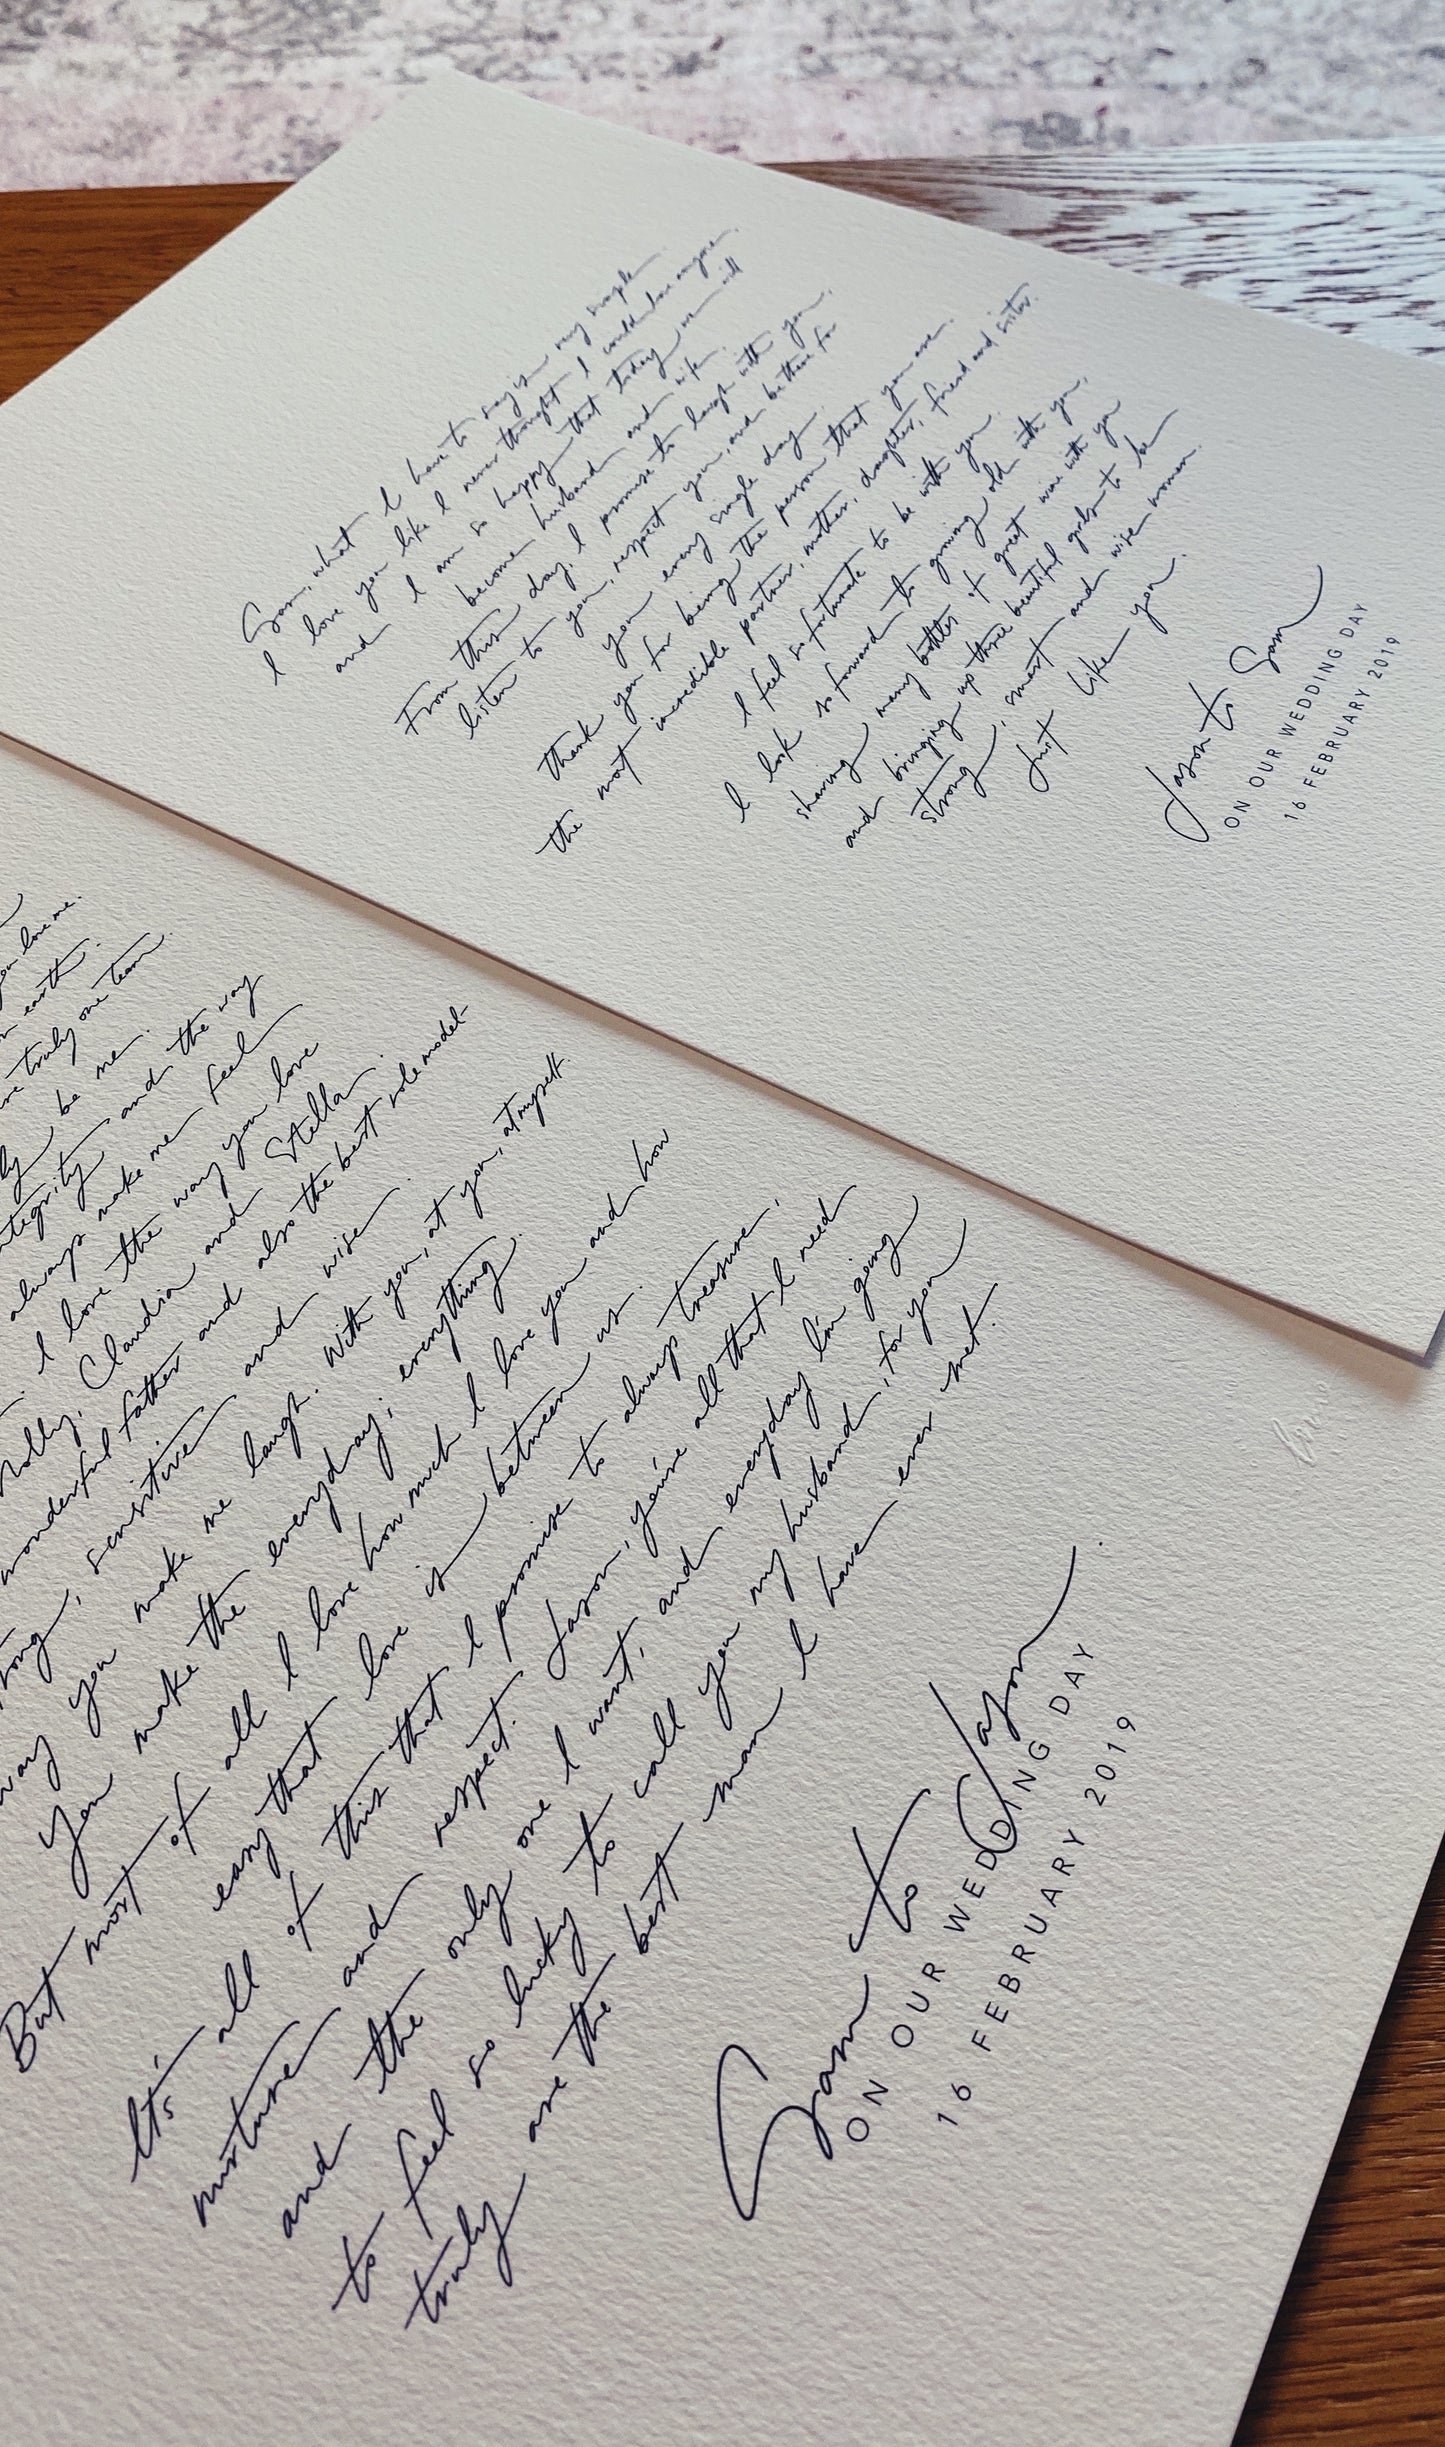 Sam, what I have to say is very simple.
I love you like I never thought I could love anyone.
and I am so happy that today we will
become husband and wife.
From this day, I promise to laugh with you,
listen to you, respect you, and be there for
you every single day.
Thank you for being the person that you are.
the most incredible partner, mother, daughter, friend and sister.
I feel so fortunate to be with you.
I look so forward to growing old with you,
sharing many bottles of great wine with you
and bringing up three beautiful girls to be
strong, smart and wise women.
Just like you.
Jason to Sam
ON OUR WEDDING DAY
16 FEBRUARY 2019
you love me.
earth.
truly one team.
be me.
integrity and the way
always make me feel
I love the way you love
Molly, Claudia and Stella.
wonderful father and also the best role model-
strong, sensitive and wise.
way you make me laugh. With you, at you, at myself.
You make the everyday, everything.
But most of all I love how much I love you and how
easy that love is between us.
It's all of this that I promise to always treasure,
nurture and respect. Jason, you're all that I need
and the only one I want, and everyday I'm going
to feel so lucky to call you my husband, for you
truly are the best man I have ever met.
Sam to Jason
ON OUR WEDDING DAY
16 FEBRUARY 2019